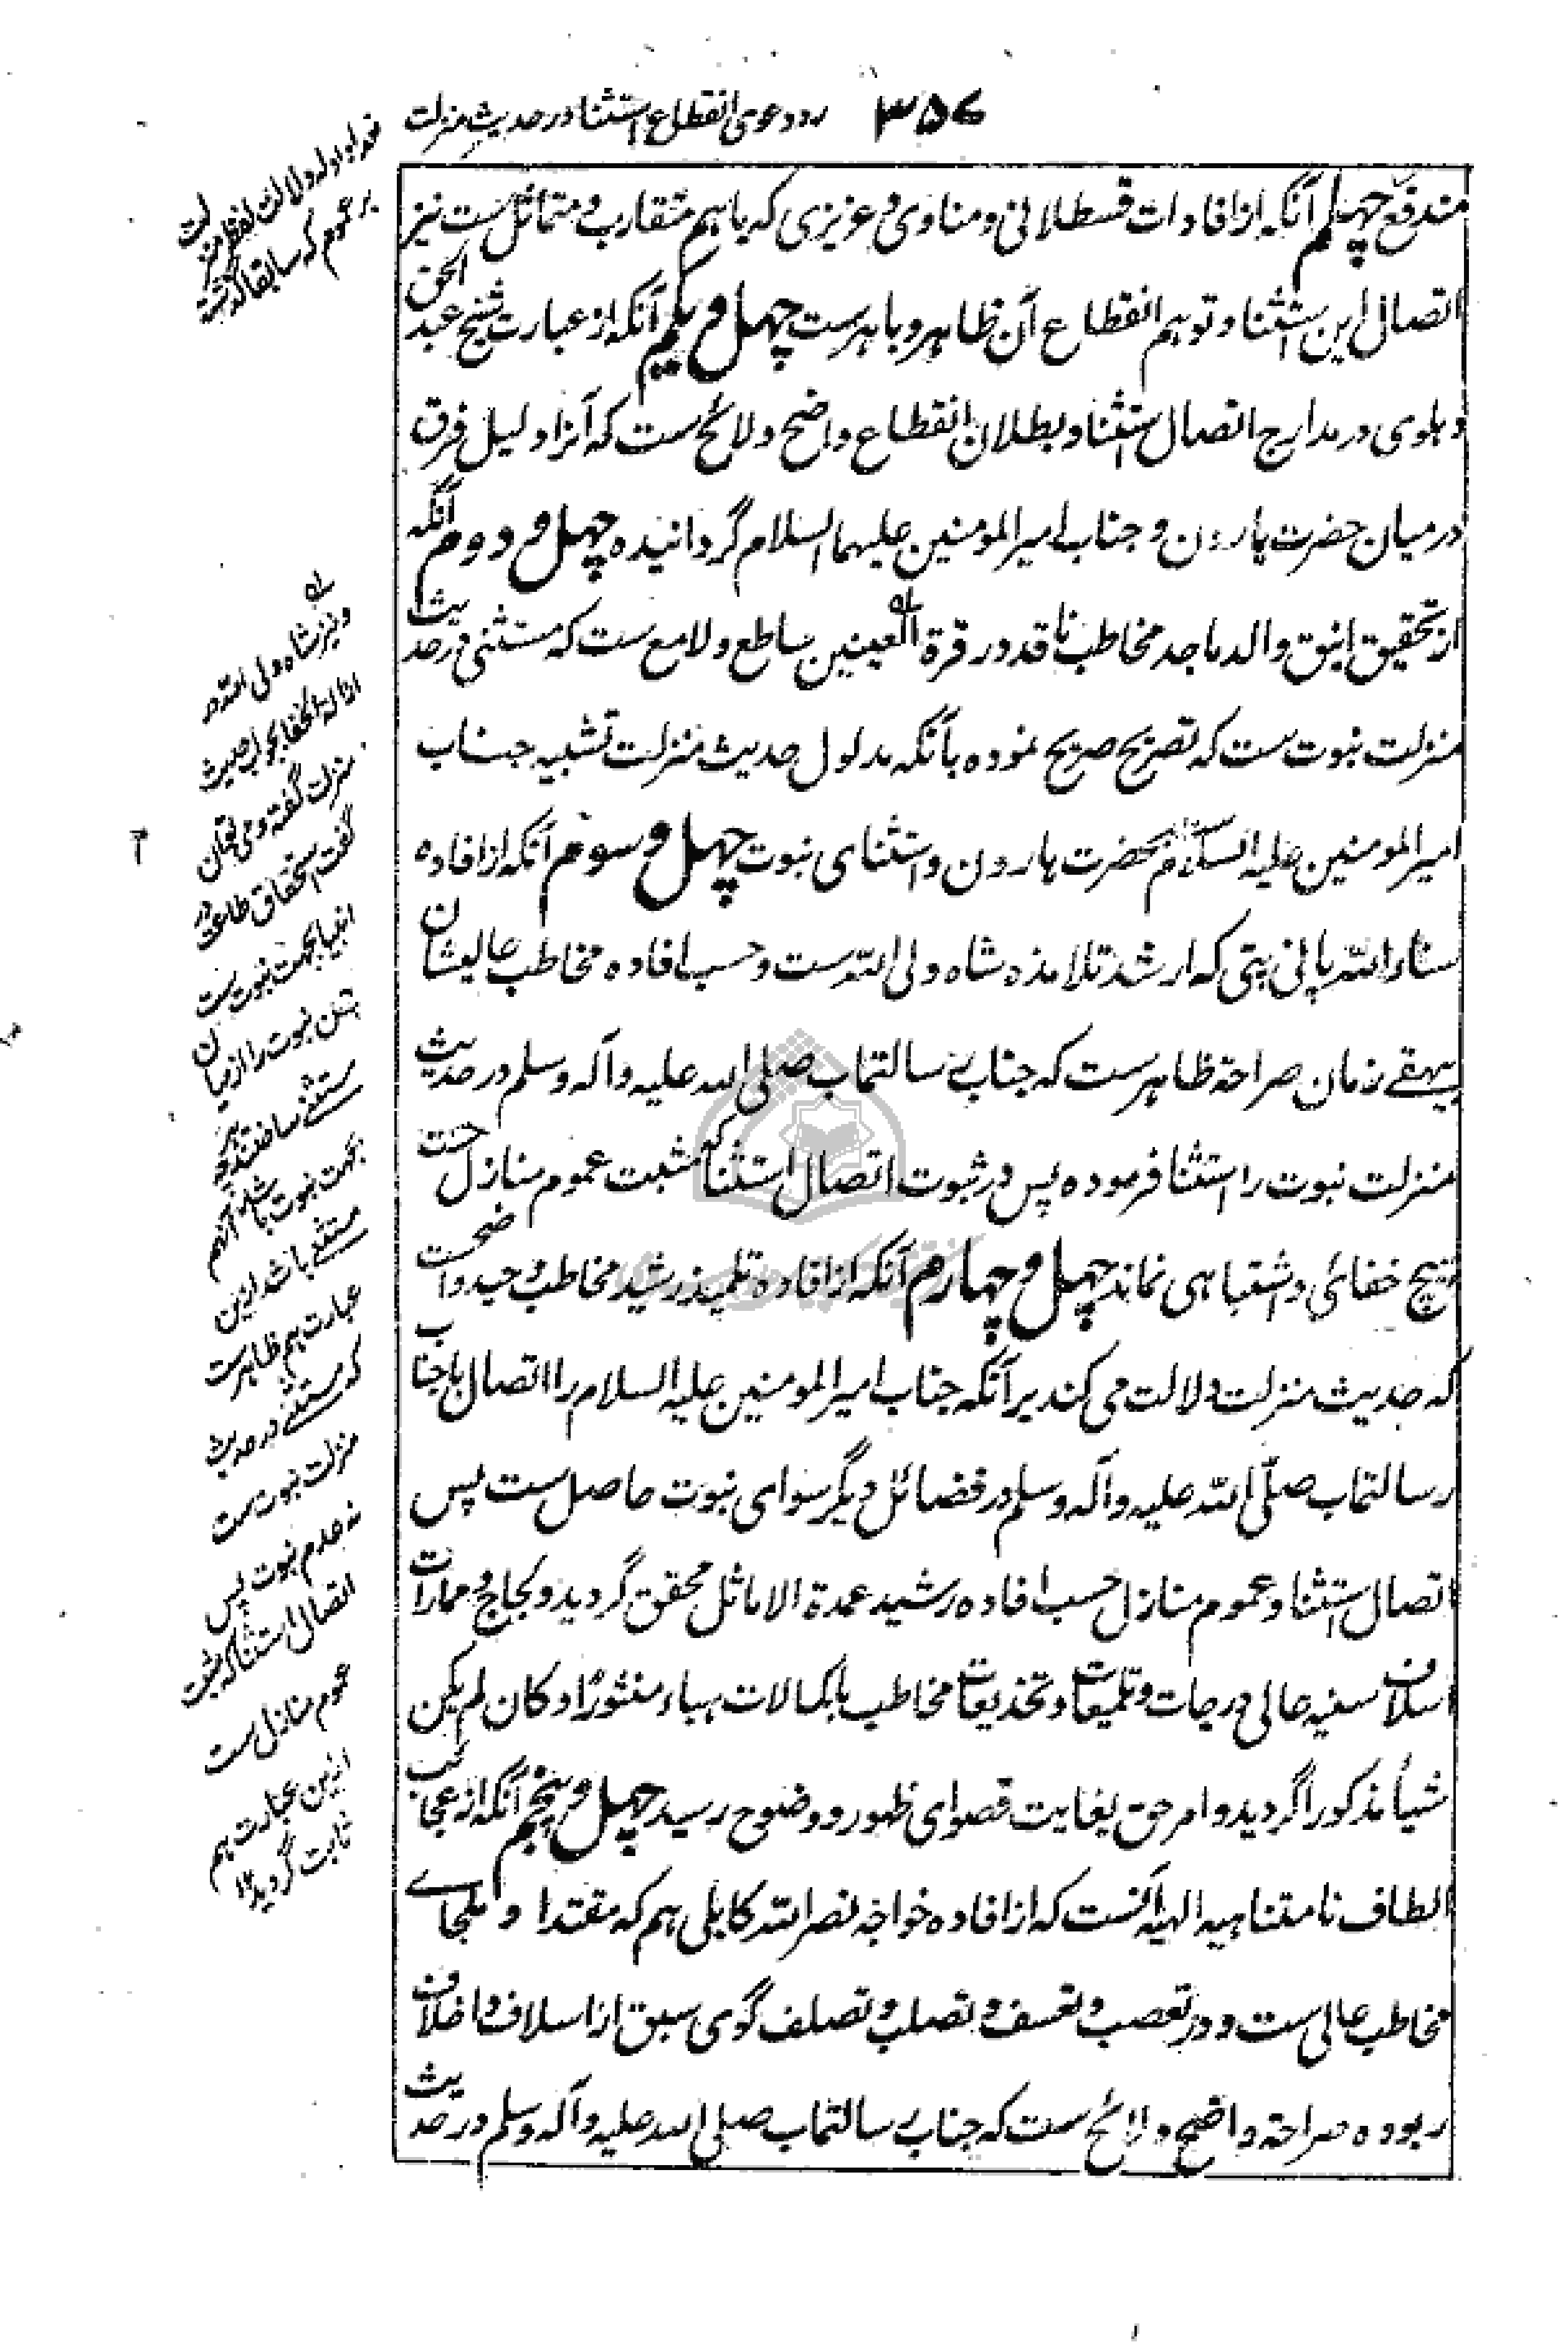 ۳۵۶ رد دعوی انقطاع استثنا در حدیث منزلت
مندفع چهلم آنکه از افادات قسطلانی و مناوی و عزیزی که باهم متقارب و متماثل ست نیز
اتصال این استثنا و توهم انقطاع آن ظاهر و باهرست چهل و یکم آنکه از عبارت شیخ عبد الحق
دهلوی در مدارج اتصال استثنا و بطلان انقطاع واضح و لائح ست که آنرا دلیل فرق
درمیان حضرت هارون و جناب امیرالمومنین علیهما السلام گردانیده چهل و دوم آنکه
از تحقیق انیق والد ماجد مخاطب ناقد در قرة العینین ساطع و لامع ست که مستثنی در حدیث
منزلت نبوت ست که تصریح صریح نموده بآنکه مدلول حدیث منزلت تشبیه جناب
امیرالمومنین علیه السلام بحضرت هارون و استثنای نبوت چهل و سوم آنکه از افاده
سناء الله پانی پتی که ارشد تلامذه شاه ولی الله ست و حسب افاده مخاطب عالیشان
بیهقے زمان صراحة ظاهرست که جناب رسالتماب صلی الله علیه و آله وسلم در حدیث
منزلت نبوت را استثنا فرموده پس در ثبوت اتصال استثنا که مثبت عموم منازل ست
هیچ خفائی و اشتباهی نماند چهل و چهارم آنکه از افاده تلمیذ رشید مخاطب وحید واضحست
که حدیث منزلت دلالت می کند بر آنکه جناب امیرالمومنین علیه السلام را اتصال با جناب
رسالتماب صلی الله علیه و آله وسلم در فضائل دیگر سوای نبوت حاصل ست پس
اتصال استثنا و عموم منازل حسب افاده رشید عمدة الاماثل محقق گردید و لجاج و ممارات
اسلاف سنیه عالی درجات و تلمیعات و تخدیعات مخاطب با کمالات هباء منثورًا و کان لم یکن
شیأ مذکورا گردید و امر حق بغایت قصوای ظهور و وضوح رسید چهل و پنجم آنکه از عجائب
الطاف نامتناهیه الهیه آنست که از افاده خواجه نصر الله کابلی هم که مقتدا و ملجاے
مخاطب عالی ست و در تعصب و تعسف و تصلب و تصلف گوی سبق از اسلاف و اخلاف
ربوده صراحة واضح و لائح ست که جناب رسالتماب صلی الله علیه و آله وسلم در حدیث
دلالت لفظ منزلت
بر عموم که سابقا گذشت
و نیز شاه ولی الله در
ازالة الخفا بجواب حدیث
منزلت گفته و می توان
گفت استحقاق طاعت در
انبیا بجهت نبوت ست
چون نبوت را از میان
مستثنے ساختند هرچه
بجهت نبوت باشد آن هم
مستثنے باشد ازین
عبارت هم ظاهرست
که مستثنے در حدیث
منزلت نبوت ست
نه عدم نبوت پس
اتصال استثنا که مثبت
عموم منازل ست
ازین عبارت هم
ثابت گردید ۱۲